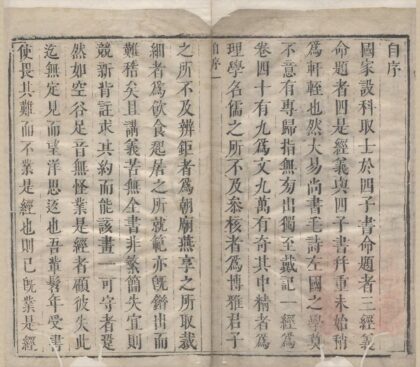 自序
國家設科取士於四子書命題者三經義
命題者四是經義與四子書幷重未始稍
爲軒輊也然大易尚書毛詩左國之學莫
不意有專歸指無旁出獨至戴記一經爲
卷四十有九爲文九萬有奇其中精者爲
理學名儒之所不及參核者爲博雅君子
自序一
之所不及辨鉅者爲朝廟燕享之所取裁
細者爲飲食起居之所就範亦旣錯出而
難稽矣且講義苦無全書非繁簡失宜則
競新背註求其約而能該畫一可守者還
然如空谷足音無怪業是經者顧彼失此
迄無定見而望洋思返也吾輩髫年受書
使畏其難而不業是經也則已旣業是經